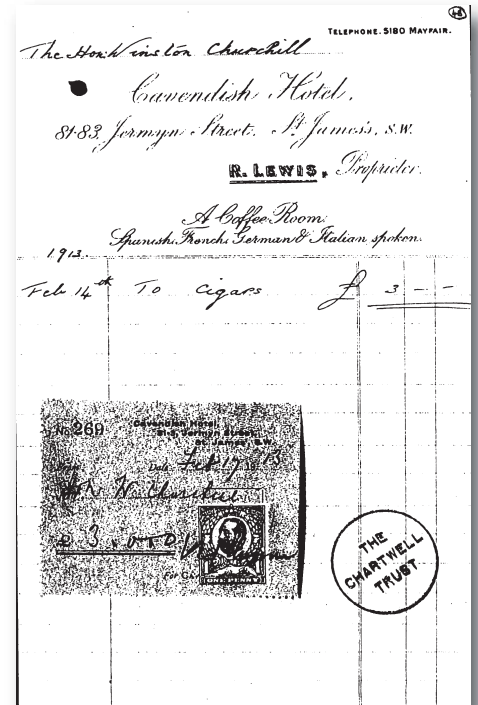 48
TELEPHONE. 5180 MAYFAIR.
The Hon: Winston Churchill
Cavendish Hotel,
81-83, Jermyn Street, St James's, S.W.
R. LEWIS, Proprietor.
A Coffee Room.
Spanish, French, German & Italian spoken.
1913.
Feb 14th To Cigars £ 3 - -
No 269
Cavendish Hotel,
81-3, Jermyn Street,
St. James', S.W.
Feb 17 1913
W. Churchill
£ 3.
ONE PENNY
THE
CHARTWELL
TRUST